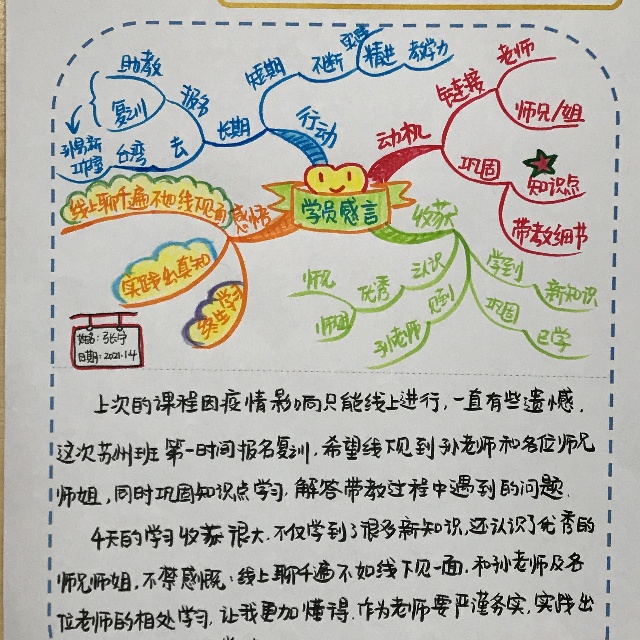 学员感言
动机
链接
老师
师兄/姐
巩固
知识点
带教细节
收获
学到
新知识
巩固
已学
认识
优秀
师兄
师姐
见到
孙老师
感悟
线上聊千遍不如线下见一面
实践出真知
终生学习
姓名：张宁
日期：2021.1.4
行动
短期
不断
精进
教学力
长期
报名
助教
复训
去
台湾
孙易新
工作室
上次的课程因疫情影响只能线上进行，一直有些遗憾，
这次苏州班第一时间报名复训，希望线下见到孙老师和各位师兄
师姐，同时巩固知识点学习，解答带教过程中遇到的问题。
4天的学习收获很大，不仅学到了很多新知识，还认识了优秀的
师兄师姐，不禁感慨：线上聊千遍不如线下见一面，和孙老师及各
位老师的相处学习，让我更加懂得，作为老师要严谨务实，实践出